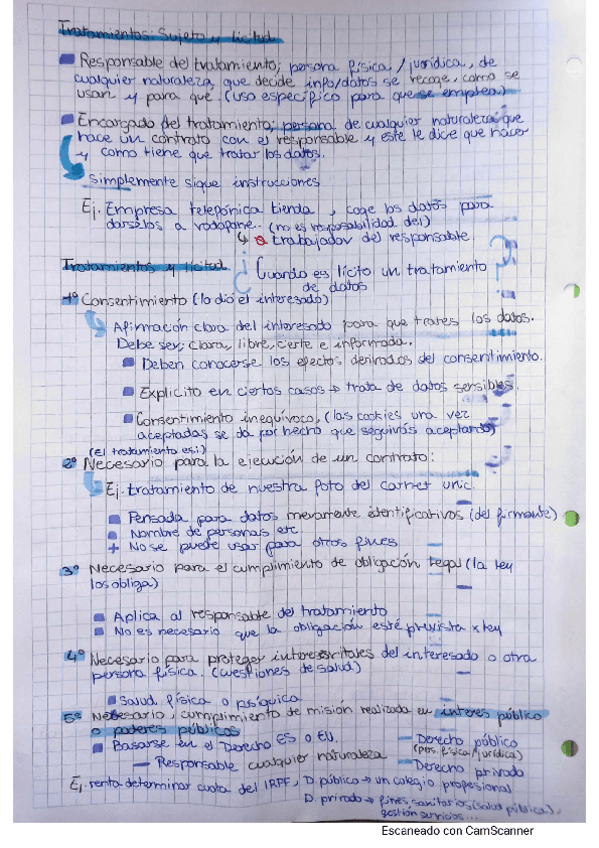 Tratamientos: Sujeto y licitud
Responsable del tratamiento; persona física / jurídica, de
cualquier naturaleza, que decide info/datos se recoge, como se
usan y para qué. (uso específico para que se emplea)
Encargado del tratamiento; persona de cualquier naturaleza que
hace un contrato con el responsable y este le dice que hacer
y como tiene que tratar los datos.
Simplemente sigue instrucciones
Ej. Empresa telefónica tienda, coge los datos para
darselos a vodafone.. (no es responsabilidad del)
↳ trabajador del responsable
Tratamientos y licitud
¿Cuando es lícito un tratamiento
de datos
1º Consentimiento (lo dio el interesado)
Afirmación clara del interesado para que trates los datos.
Debe ser; clara, libre, cierte e informada.
Deben conocerse los efectos derivados del consentimiento.
Explicito en ciertos casos → trata de datos sensibles.
Consentimiento inequívoco, (las cookies una vez
aceptadas se da por hecho que seguirás aceptando)
(el tratamiento es:)
2º Necesario para la ejecución de un contrato:
Ej. tratamiento de nuestra foto del carnet unic.
Pensada para datos meramente identificativos (del firmante)
Nombre de personas etc
+ No se puede usar para otros fines
3º Necesario para el cumplimiento de obligación legal (la ley
los obliga)
Aplica al responsable del tratamiento
No es necesario que la obligación esté prevista x ley
4º Necesario para proteger intereses vitales del interesado o otra
persona física. (cuestiones de salud)
Salud física o psíquica
5º Necesario, cumplimiento de misión realizada en interés público
o poderes públicos
Basarse en el Derecho ES o EU.
— Responsable cualquier naturaleza
— Derecho público
(pers. física/jurídica)
— Derecho privado
Ej. renta determinar cuota del IRPF, D. público → un colegio profesional
D. privado → fines sanitarios (salud pública),
gestión servicios...
Escaneado con CamScanner